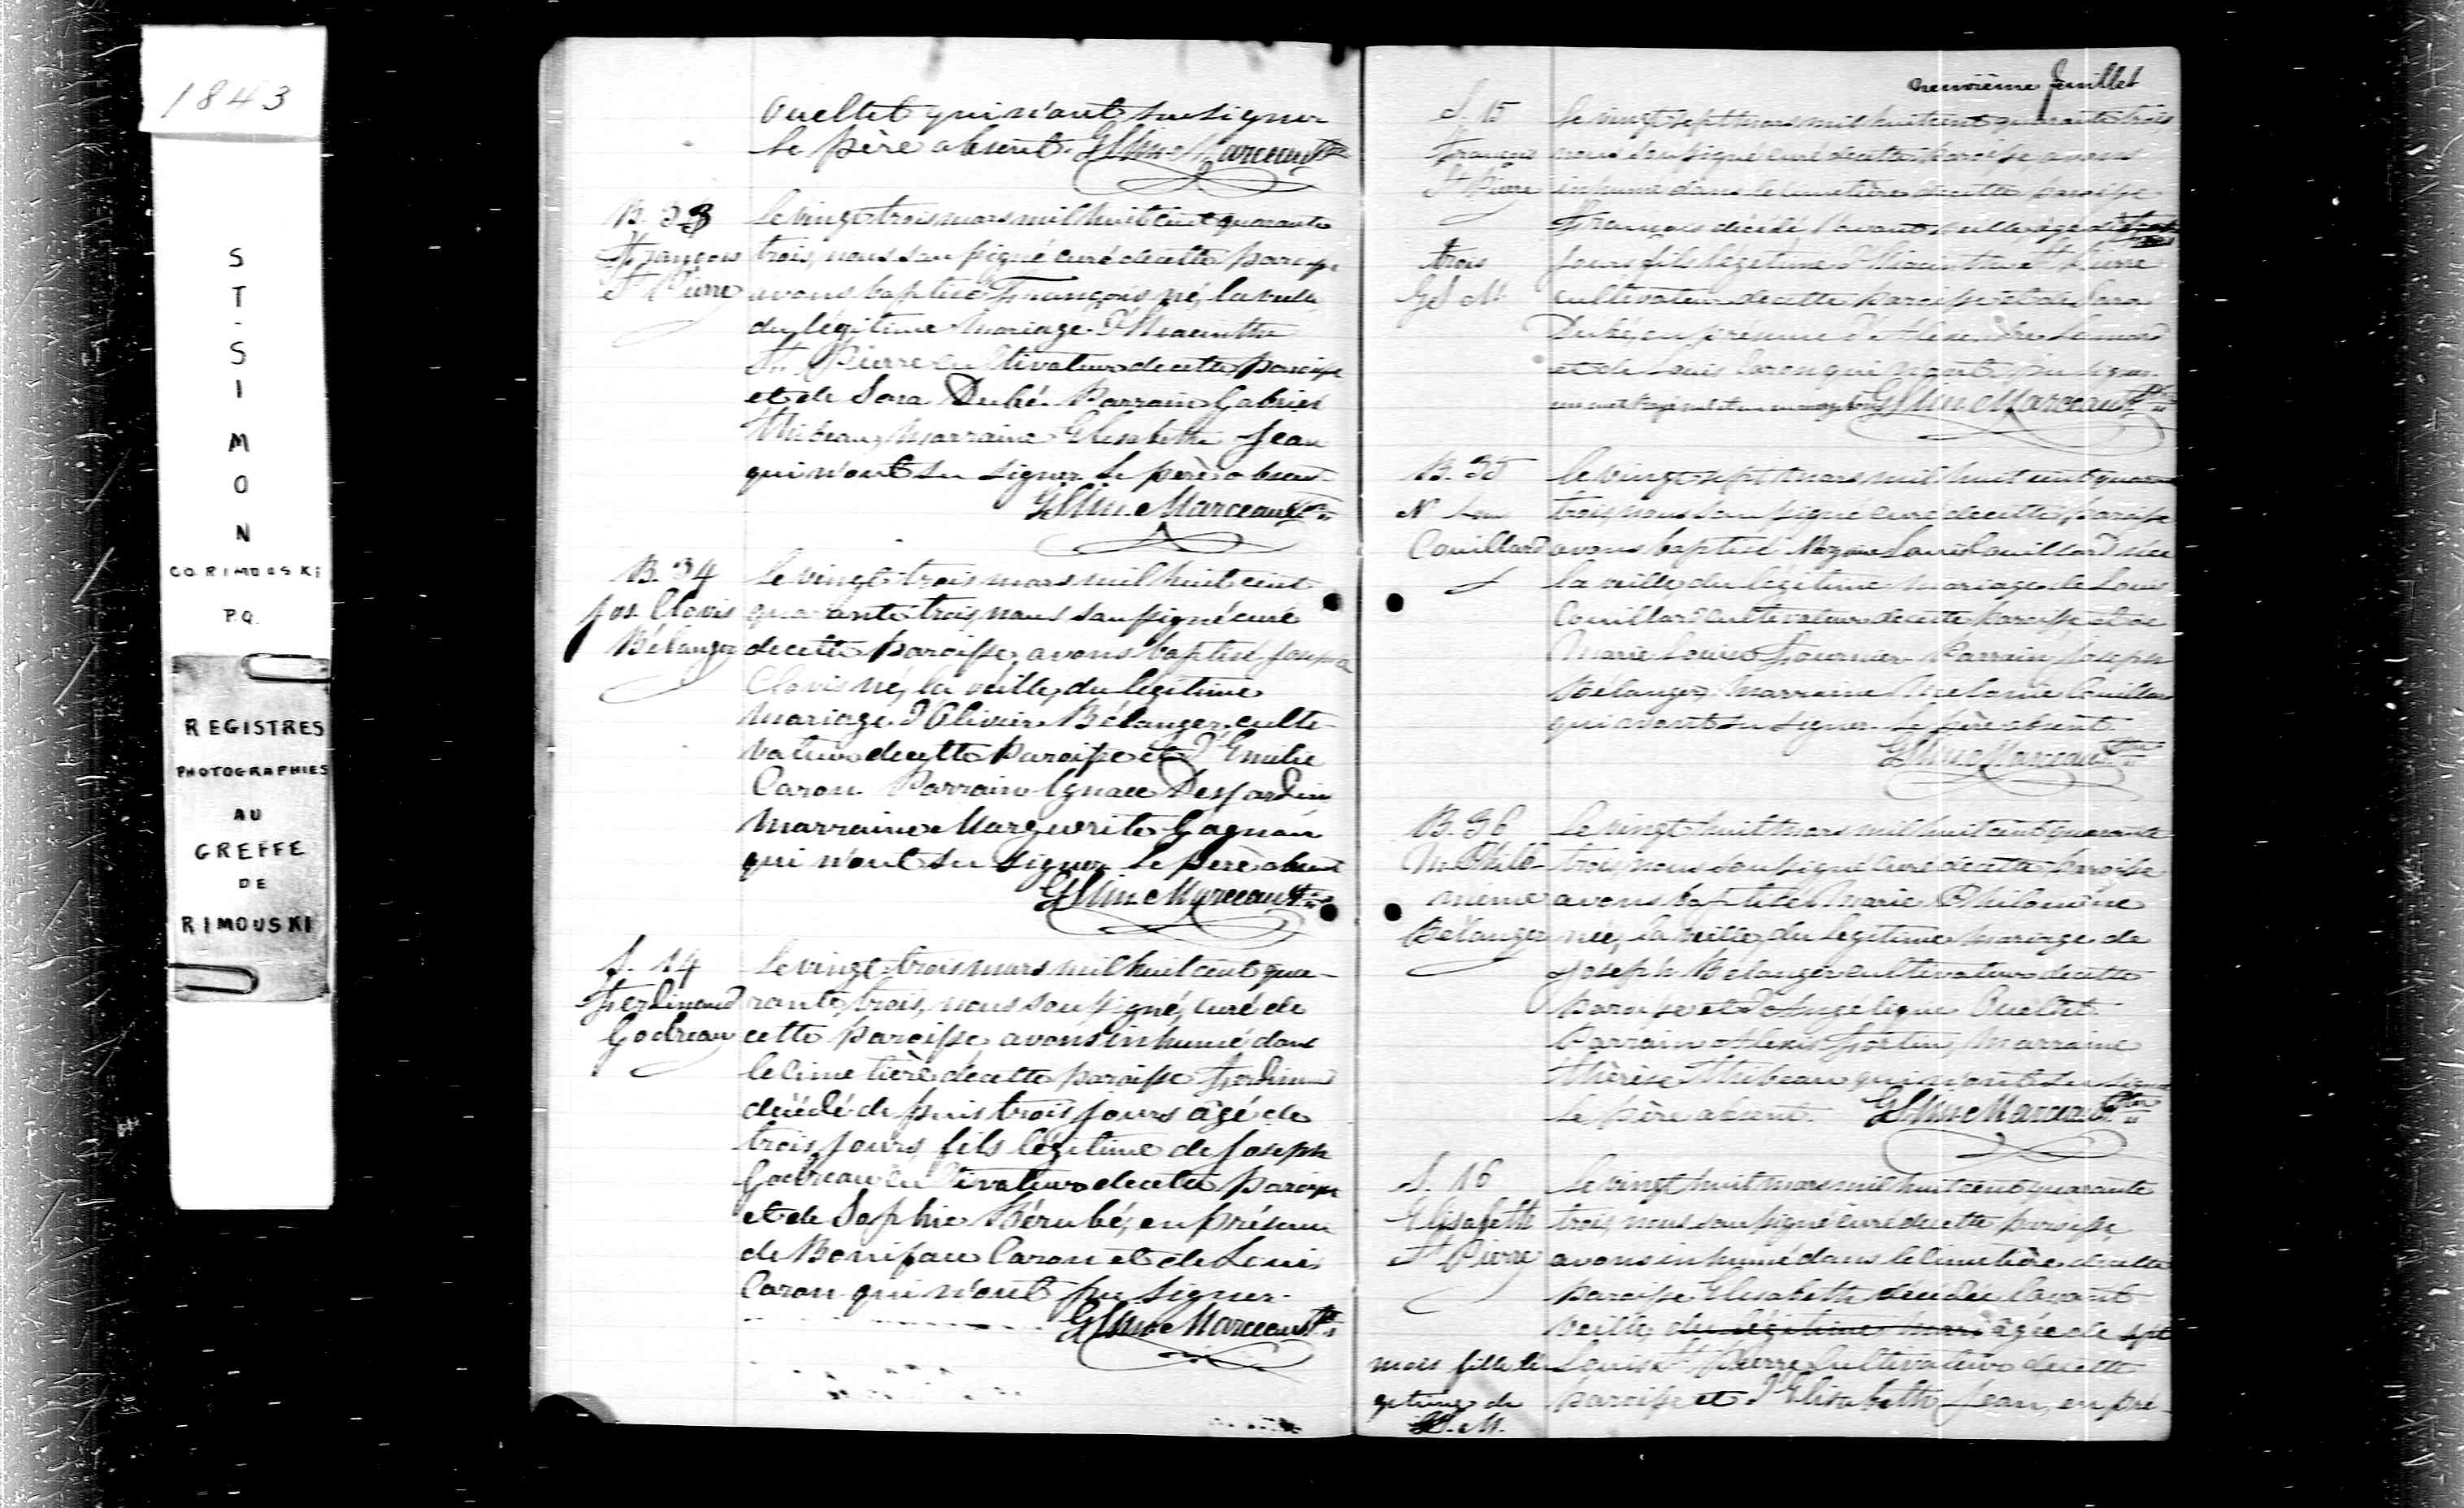 1843
ST-SIMON
CO. RIMOUSKI
P.Q.
REGISTRES
PHOTOGRAPHIES
AU
GREFFE
DE
RIMOUSKI
Ouellet qui n'ont su signer
Le père absent.
B. 33
François
St Pierre
Le vingt trois mars mil huit cent quarante
trois, nous soussigné curé de cette paroisse
avons baptisé François né, la veille
du légitime mariage d'Hiacinthe
St. Pierre cultivateur de cette paroisse
et de Sara Dubé. Parrain Gabriel
Thibeau, Marraine Elisabethe Jean
qui n'ont su signer Le père absent
B. 34
Jos. Clovis
Bélanger
Le vingt trois mars mil huit cent
quarante trois, nous soussigné curé
de cette paroisse, avons baptisé Joseph
Clovis né, la veille, du légitime
mariage d'Olivier Bélanger culti-
vateur de cette paroisse et d'Emilie
Caron. Parrain Ignace Desjardin
marraine Marguerite Gagnon
qui n'ont su signer Le père absent
S. 14
Ferdinand
Godreau
Le vingt-trois mars mil huit cent qua-
rante trois, nous soussigné, curé de
cette paroisse, avons inhumé dans
le cimetière de cette paroisse Ferdinand
décédé depuis trois jours âgé de
trois jours, fils légitime de Joseph
Godreau cultivateur de cette paroisse
et de Sophie Bérubé, en présence
de Boniface Caron et de Louis
Caron qui n'ont pu signer.
neuvième feuillet
S. 15
François
St Pierre
trois
Le vingt sept mars mil huit cent quarante trois
nous soussigné curé de cette paroisse, avons
inhumé dans le cimetière de cette paroisse
François décédé l'avant veille, âgé de
jours fils légitime d'Hiacinthe St Pierre
cultivateur de cette paroisse et de Sara
Dubé, en présence d'Alexandre
et de Louis Caron qui n'ont pu signer.
B. 35
Couillard
Le vingt sept mars mil huit cent quarante
trois, nous soussigné curé de cette paroisse
avons baptisé Couillard née
la veille du légitime mariage de Louis
Couillard cultivateur de cette paroisse et de
Marie Louise Fournier Parrain Joseph
Bélanger, Marraine Couillard
qui n'ont su signer. Le père absent.
B. 36
M. Philo-
mène
Bélanger
Le vingt huit mars mil huit cent quarante
trois, nous soussigné curé de cette paroisse
avons baptisé Marie Philomène
née, la veille, du légitime mariage de
Joseph Bélanger cultivateur de cette
paroisse et d'Angélique Ouellet.
Parrain Alexis Fortin, Marraine
Thérèse Thibeau qui n'ont su signer
Le père absent.
S. 16
Elisabeth
St Pierre
Le vingt huit mars mil huit cent quarante
trois, nous soussigné curé de cette paroisse,
avons inhumé dans le cimetière de cette
paroisse Elisabeth décédée l'avant
veille, du légitime mari âgée de sept
mois fille lé
gitime de
Louis St Pierre cultivateur de cette
paroisse et d'Elisabeth Jean, en pré-